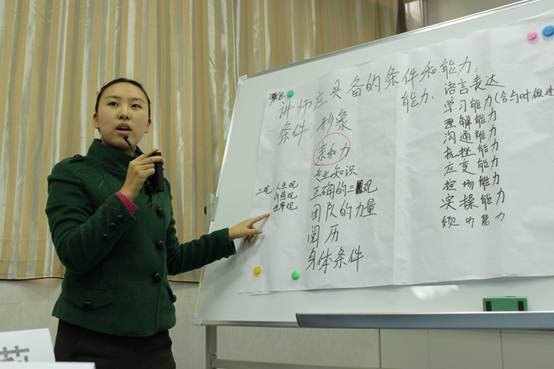 讲师应具备的条件和能力:
条件
形象
亲和力
专业知识
正确的三观
团队的力量
阅历
身体条件
三观
人生观
价值观
世界观
能力:
语言表达
学习能力
理解能力
沟通能力
抗挫能力
应变能力
控场能力
实操能力
倾听能力
莉